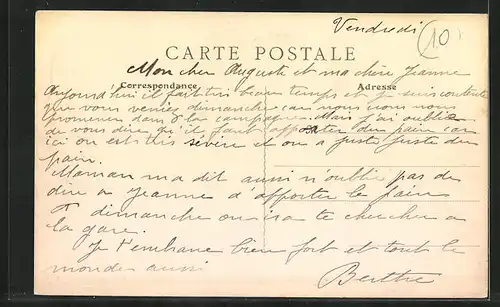 Vendredi
10
CARTE POSTALE
Mon cher Auguste et ma chère Jeanne
Correspondance
Adresse
Aujourd'hui il fait très beau temps et je suis contente
que vous veniez dimanche car nous irons nous
promener dans la campagne. Mais j'ai oublié
de vous dire qu'il faut apporter du pain car
ici on est très sévère et on a juste juste du
pain.
Maman ma dit aussi n'oublie pas de
dire a Jeanne d'apporter le pain
A dimanche on ira te chercher a
la gare.
Je t'embrasse bien fort et tout le
monde aussi
Berthe